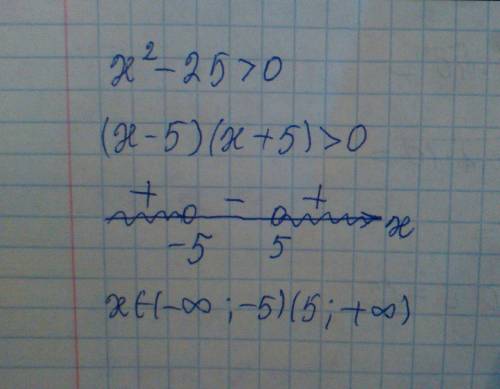 x² - 25 > 0
(x - 5)(x + 5) > 0
+ - +
-5 5 x
x ∈ (-∞ ; -5)(5 ; +∞)